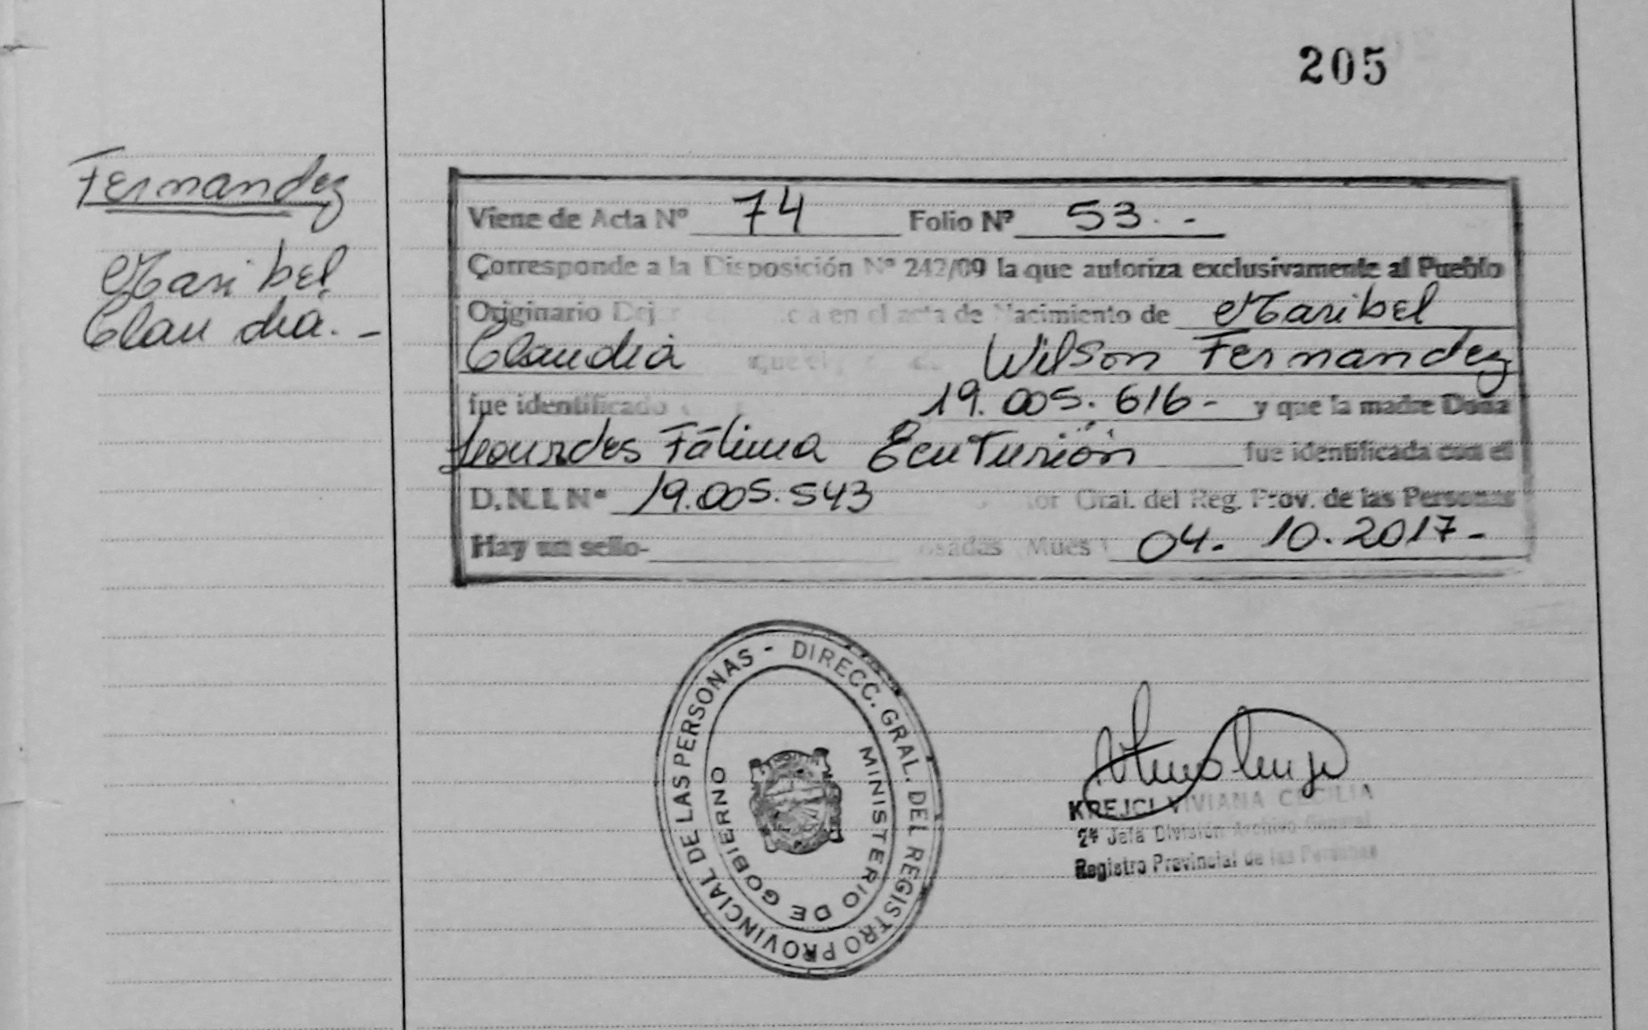 205
Fernandez
Maribel
Claudia. -
Viene de Acta Nº 74 Folio Nº 53. -
Corresponde a la Disposición Nº 242/09 la que autoriza exclusivamente al Pueblo
Originario en el acta de Nacimiento de Maribel
Claudia Wilson Fernandez
fue identificado 19.005.616- y que la madre Doña
Lourdes Fátima Centurión fue identificada con el
D.N.I. Nº 19.005.543 Gral. del Reg. Prov. de las Personas
Hay un sello- 04. 10. 2017-
DIRECC. GRAL. DEL REGISTRO PROVINCIAL DE LAS PERSONAS -
MINISTERIO DE GOBIERNO
KREJCI VIVIANA CECILIA
2ª Jefa División Archivo General
Registro Provincial de las Personas